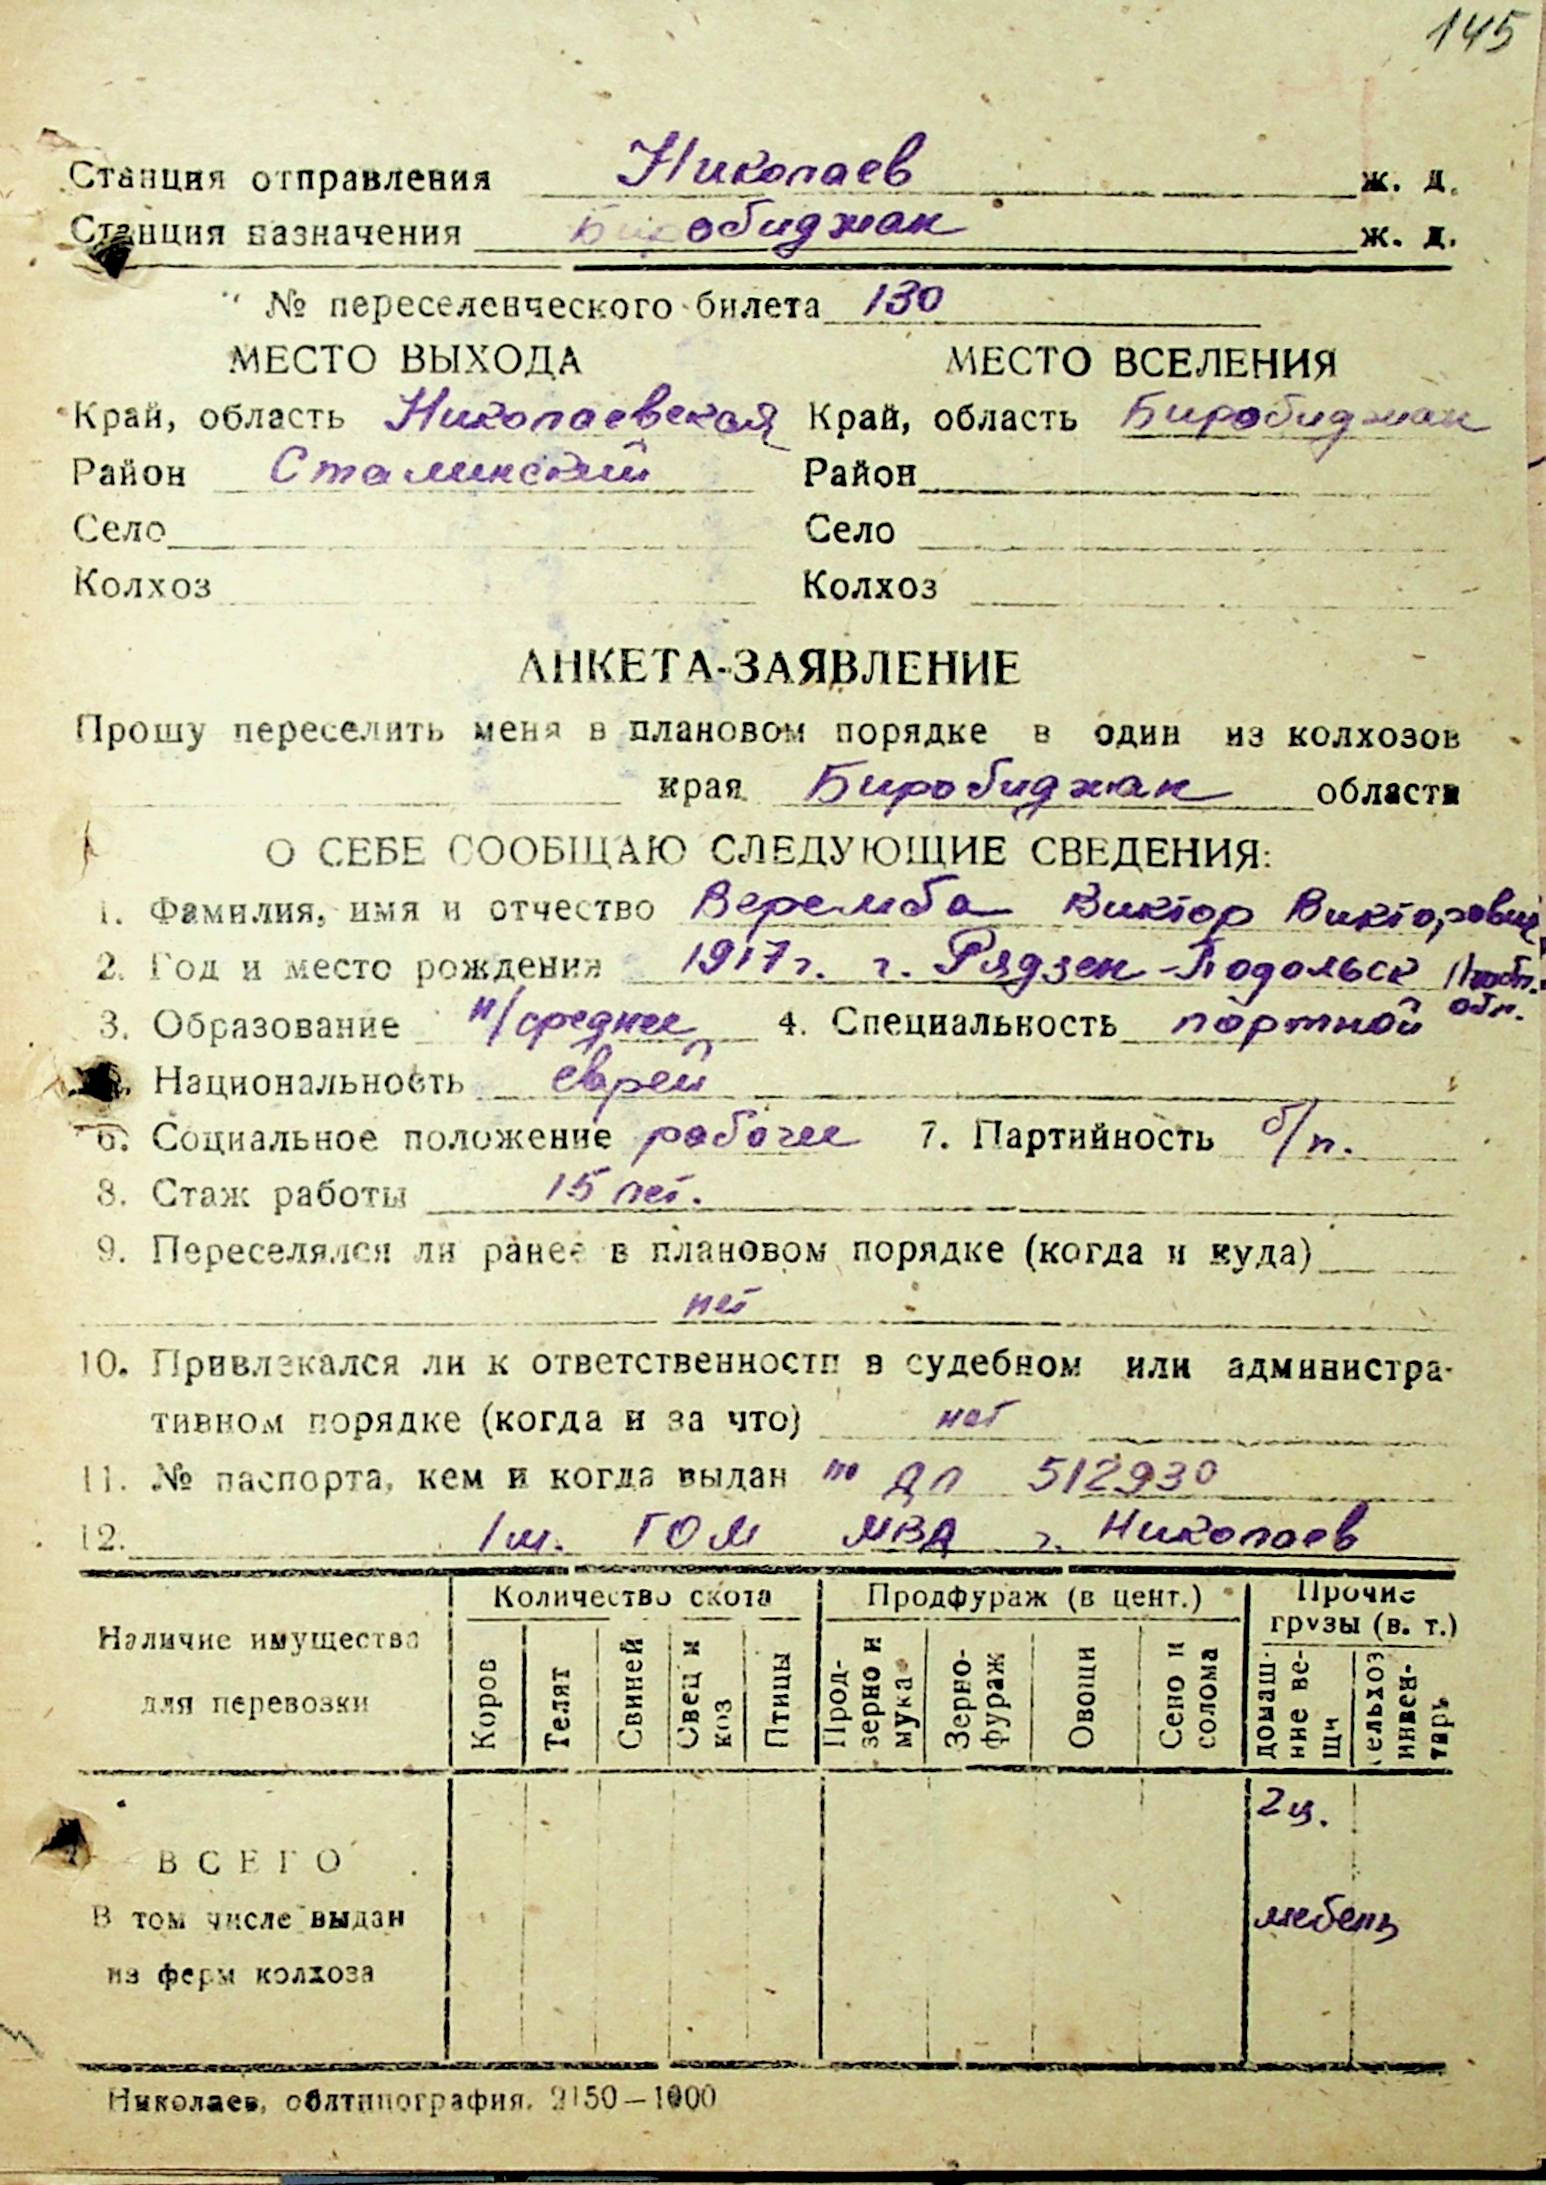 145
Станция отправления Николаев ж. д.
Станция назначения Биробиджан ж. д.
№ переселенческого билета 130
МЕСТО ВЫХОДА МЕСТО ВСЕЛЕНИЯ
Край, область Николаевская Край, область Биробиджан
Район Сталинский Район
Село Село
Колхоз Колхоз
АНКЕТА-ЗАЯВЛЕНИЕ
Прошу переселить меня в плановом порядке в один из колхозов
края Биробиджан области
О СЕБЕ СООБЩАЮ СЛЕДУЮЩИЕ СВЕДЕНИЯ:
1. Фамилия, имя и отчество Веремба Виктор Викторович
2. Год и место рождения 1917 г. г. Рядзен-Подольск
обл.
3. Образование н/среднее 4. Специальность портной
Национальность еврей
6. Социальное положение рабочие 7. Партийность б/п.
8. Стаж работы 15 лет.
9. Переселялся ли ранее в плановом порядке (когда и куда)
нет
10. Привлекался ли к ответственности в судебном или администра-
тивном порядке (когда и за что) нет
11. № паспорта, кем и когда выдан 512930
12. 1м. ГОМ МВД г. Николаев
Количество скота Продфураж (в цент.) Прочие грузы (в. т.)
Наличие имущества для перевозки
Коров Телят Свиней Овец и коз Птицы Прод-зерно и мука Зерно-фураж Овощи Сено и солома домаш-ние ве-щи сельхоз инвен-тарь
2 ц.
ВСЕГО
В том числе выдан мебель
из ферм колхоза
Николаев, облтипография. 2150—1000